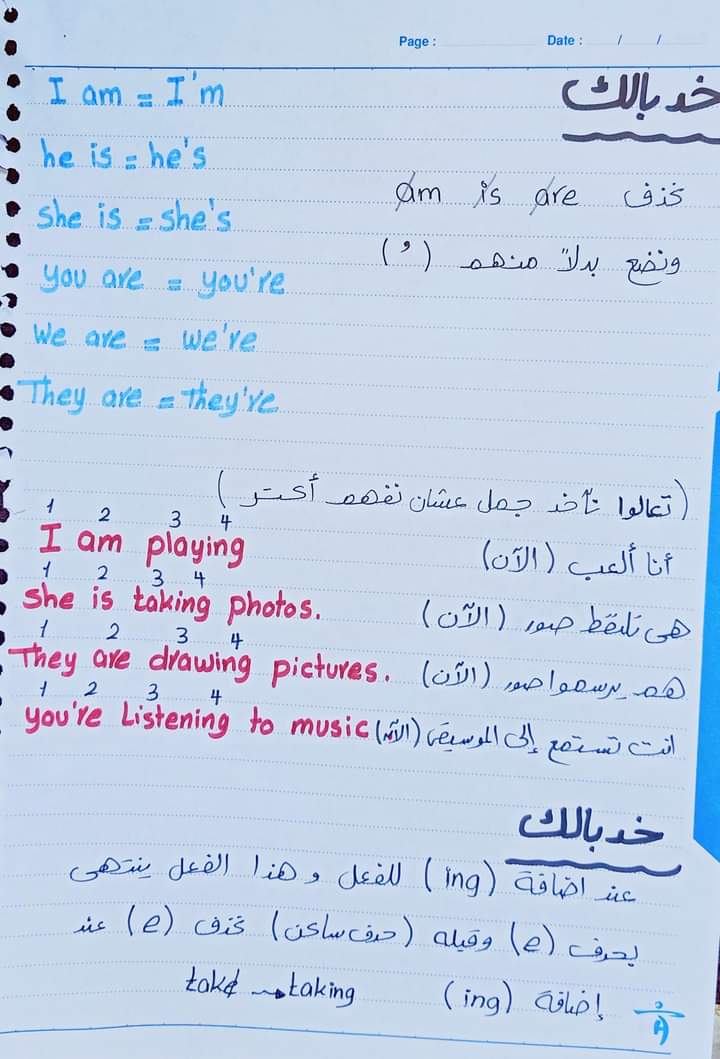 Page : Date : / /
خد بالك
I am = I'm
he is = he's
نحذف am is are
She is = she's
ونضع بدلاً منهم (')
you are = you're
We are = we're
They are = they're
(تعالوا نأخد جمل عشان نفهم أكتر)
1 2 3 4
I am playing أنا ألعب (الآن)
1 2 3 4
She is taking photos. هى تلتقط صور (الآن)
1 2 3 4
They are drawing pictures. هم يرسموا صور (الآن)
1 2 3 4
you're Listening to music انت تستمع إلى الموسيقى (الآن)
خد بالك
عند اضافة (ing) للفعل وهذا الفعل ينتهى
بحرف (e) وقبله (حرف ساكن) نحذف (e) عند
إضافة (ing) take → taking